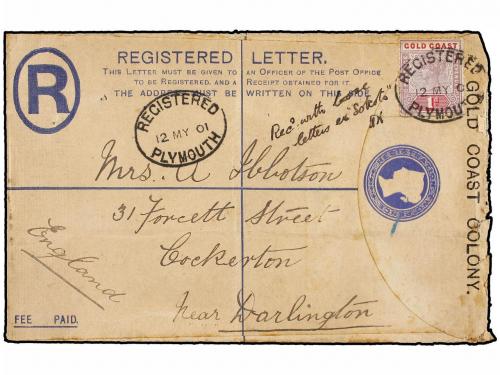 REGISTERED LETTER.
THIS LETTER MUST BE GIVEN TO AN OFFICER OF THE POST OFFICE
TO BE REGISTERED, AND A RECEIPT OBTAINED FOR IT.
THE ADDRESS MUST BE WRITTEN ON THIS SIDE
R
GOLD COAST
REGISTERED
12 MY 01
PLYMOUTH
REGISTERED
12 MY 01
PLYMOUTH
GOLD COAST COLONY.
Rec'd with
letters ex "Sokoto"
Mrs. A Ibbotson
31 Forcett Street
Cockerton
Near Darlington
England
FEE PAID.